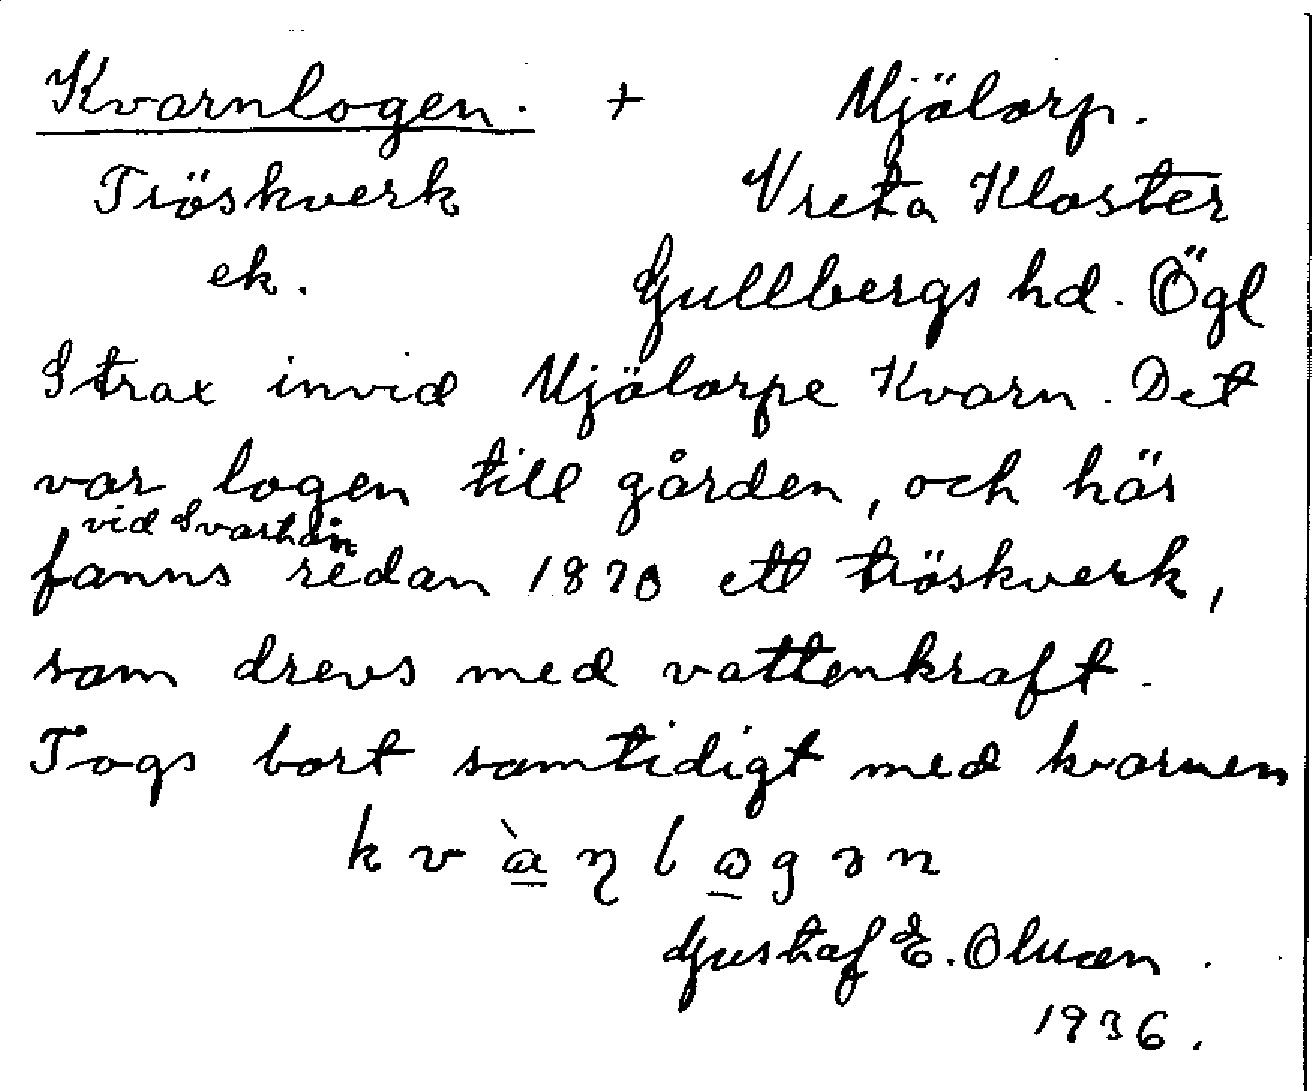 Kvarnlogen. + Mjölorp.
Tröskverk Vreta Kloster
ek. Gullbergs hd. Ögl
Strax invid Mjölorpe Kvarn. Det
var logen till gården, och här
vid Svartån
fanns redan 1870 ett tröskverk,
som drevs med vattenkraft.
Togs bort samtidigt med kvarnen
Gustaf E.
1936.